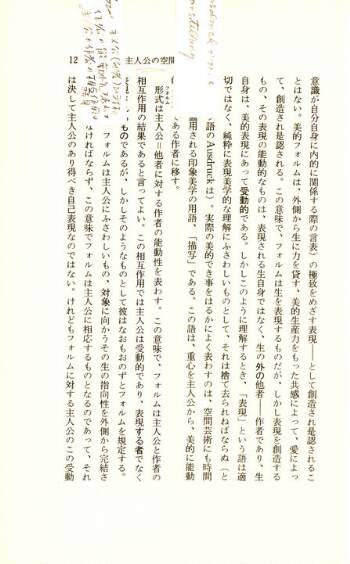 12
主人公の空間
意識が自分自身に内的に関係する際の言表）の極致をめざす表現――として創造され是認されるこ
とはない。美的フォルムは、外側から生に力を貸す、美的生産力をもった共感によって、愛によっ
て、創造され是認される。この意味で、フォルムは生を表現するものだが、しかし表現を創造する
もの、その表現の能動的なものは、表現される生自身ではなく、生の外の他者――作者であり、生
自身は、美的表現にあって受動的である。しかしこのように理解するとき、「表現」という語は適
切ではなく、純粋に表現美学的な理解にふさわしいものとして、それは捨て去られねばならぬ（と
語の Ausdruck は）。実際の美的でき事をはるかによく表わすのは、空間芸術にも時間
用される印象美学の用語、「描写」である。この語は、重心を主人公から、美的に能動
ある作者に移す。
形式は主人公＝他者に対する作者の能動性を表わす。この意味で、フォルムは主人公と作者の
フォルム
相互作用の結果であると言ってよい。この相互作用では主人公は受動的であり、表現する者でなく
ものであるが、しかしそのようなものとして彼はなおもおのずとフォルムを規定する。
フォルムは主人公にふさわしいもの、対象に向かうその生の指向性を外側から完結さ
なければならず、この意味でフォルムは主人公に相応するものとなるのであって、それ
は決して主人公のあり得べき自己表現なのではない。けれどもフォルムに対する主人公のこの受動